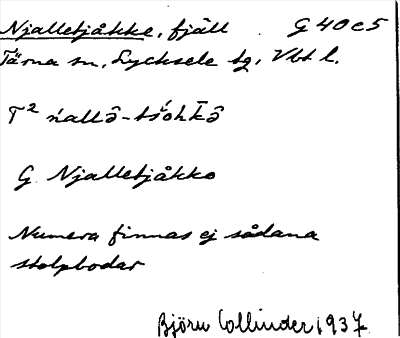 Njalletjåkke, fjäll G 40 c 5
Tärna sn, Lycksele lg, Vbt l.
T² ńallō̂-tśo̍hkō̂
G. Njalletjåkko
Numera finnas ej sådana
stolpbodar
Björn Collinder, 1937